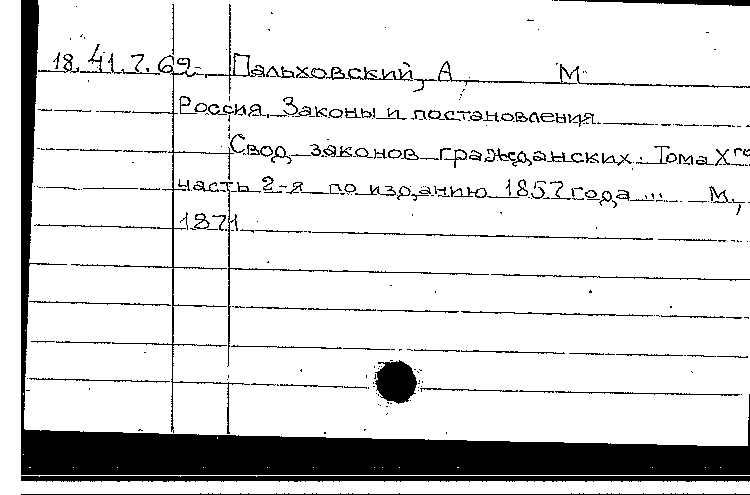 18.41.7.69. Пальховский, А, М
Россия. Законы и постановления
Свод законов гражданских. Тома Xго
часть 2-я по изданию 1857 года ... М.,
1871